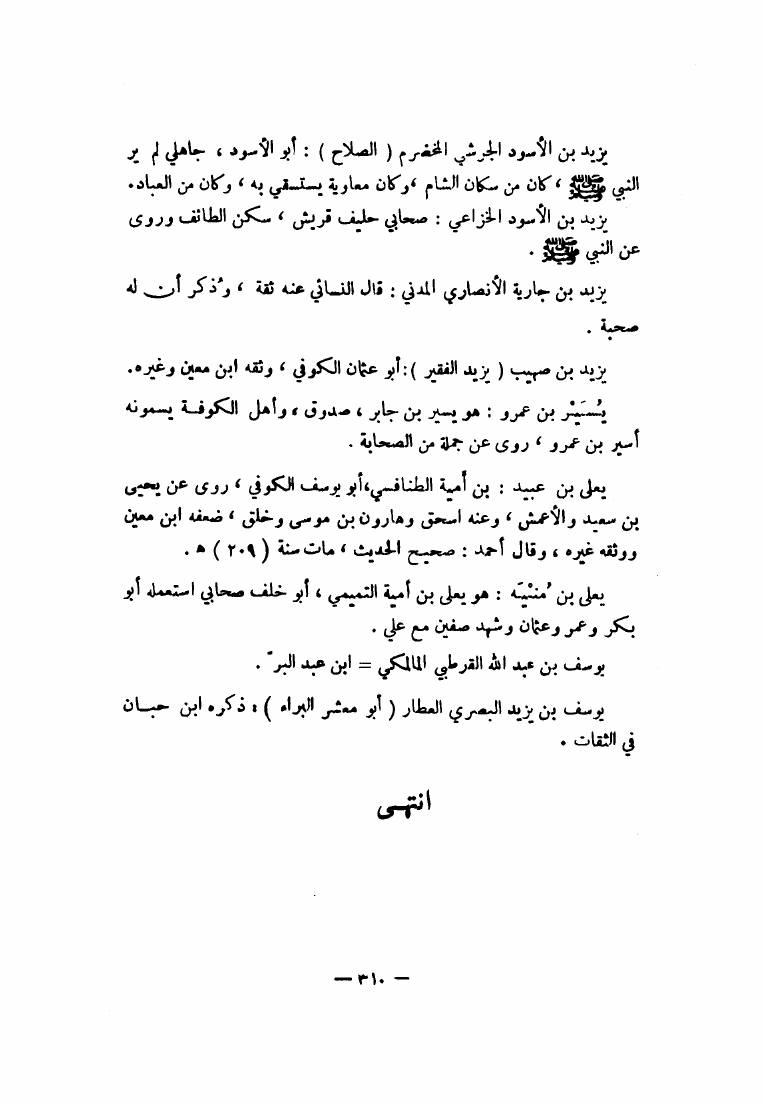 يزيد بن الأسود الجرشي المخضرم ( الصلاح ) : أبو الأسود ، جاهلي لم ير
النبي ﷺ ، كان من سكان الشام ، وكان معاوية يستسقي به ، وكان من العباد .
يزيد بن الأسود الخزاعي : صحابي حليف قريش ، سكن الطائف وروى
عن النبي ﷺ .
يزيد بن جارية الأنصاري المدني : قال النسائي عنه ثقة ، وذُكر أن له
صحبة .
يزيد بن صهيب ( يزيد الفقير ) : أبو عثمان الكوفي ، وثقه ابن معين وغيره .
يُسَيْر بن عمرو : هو يسير بن جابر ، صدوق ، وأهل الكوفة يسمونه
أسير بن عمرو ، روى عن جملة من الصحابة .
يعلى بن عبيد : بن أمية الطنافسي ، أبو يوسف الكوفي ، روى عن يحيى
بن سعيد والأعمش ، وعنه اسحق وهارون بن موسى وخلق ، ضعفه ابن معين
ووثقه غيره ، وقال أحمد : صحيح الحديث ، مات سنة ( ٢٠٩ ) ه .
يعلى بن مُنْيَه : هو يعلى بن أمية التميمي ، أبو خلف صحابي استعمله أبو
بكر وعمر وعثمان وشهد صفين مع علي .
يوسف بن عبد الله القرطبي المالكي = ابن عبد البرّ .
يوسف بن يزيد البصري العطار ( أبو معشر البراء ) : ذكره ابن حبان
في الثقات .
انتهى
— ٣١٠ —